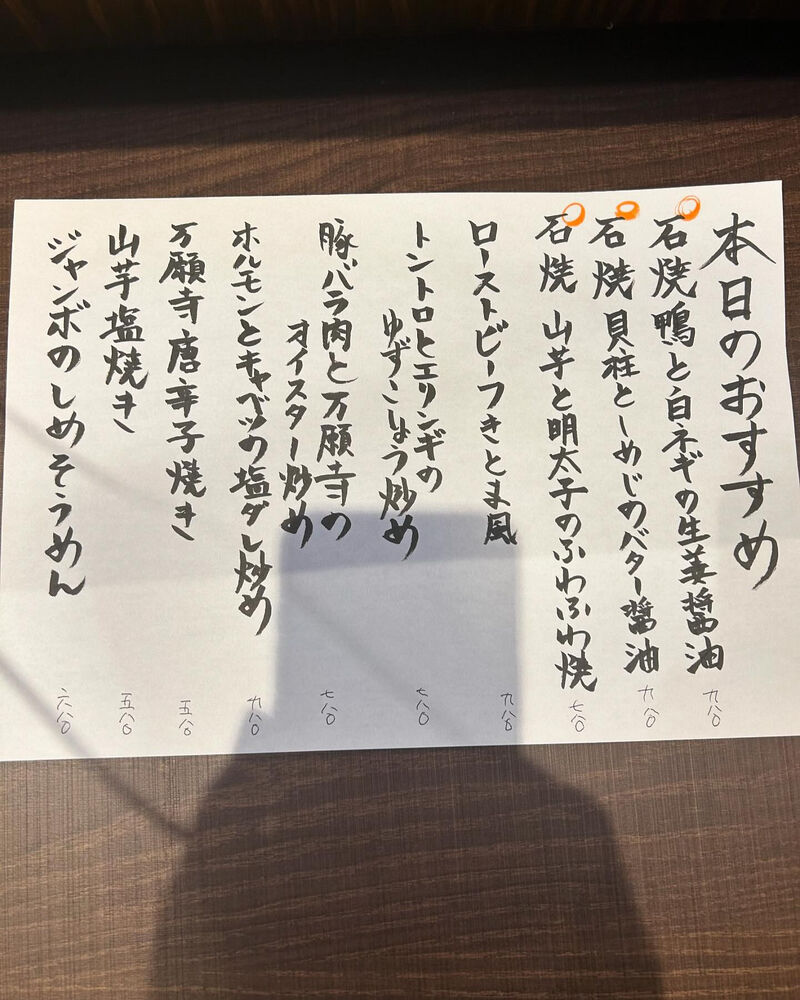 本日のおすすめ
石焼 鴨と白ネギの生姜醤油 九八〇
石焼 貝柱としめじのバター醤油 九八〇
石焼 山芋と明太子のふわふわ焼 七八〇
ローストビーフきとま風 九八〇
トントロとエリンギの
ゆずこしょう炒め 七八〇
豚バラ肉と万願寺の
オイスター炒め 七八〇
ホルモンとキャベツの塩ダレ炒め 九八〇
万願寺唐辛子焼き 五八〇
山芋塩焼き 五八〇
ジャンボのしめそうめん 六八〇